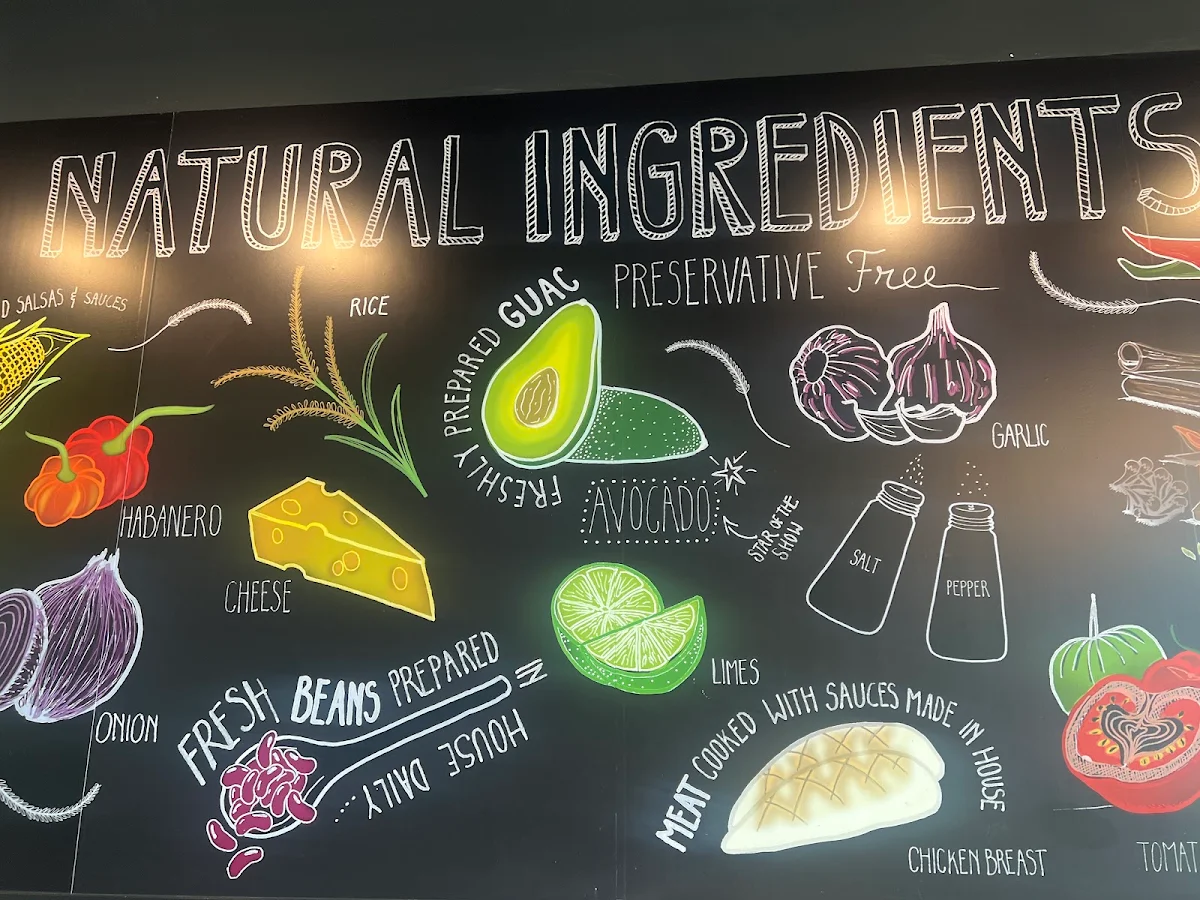 NATURAL INGREDIENTS
PRESERVATIVE Free
D SALSAS & SAUCES
RICE
FRESHLY PREPARED GUAC
GARLIC
AVOCADO
STAR OF THE
SHOW
HABANERO
CHEESE
SALT
PEPPER
LIMES
ONION
FRESH BEANS PREPARED IN
HOUSE DAILY
MEAT COOKED WITH SAUCES MADE IN HOUSE
CHICKEN BREAST
TOMAT